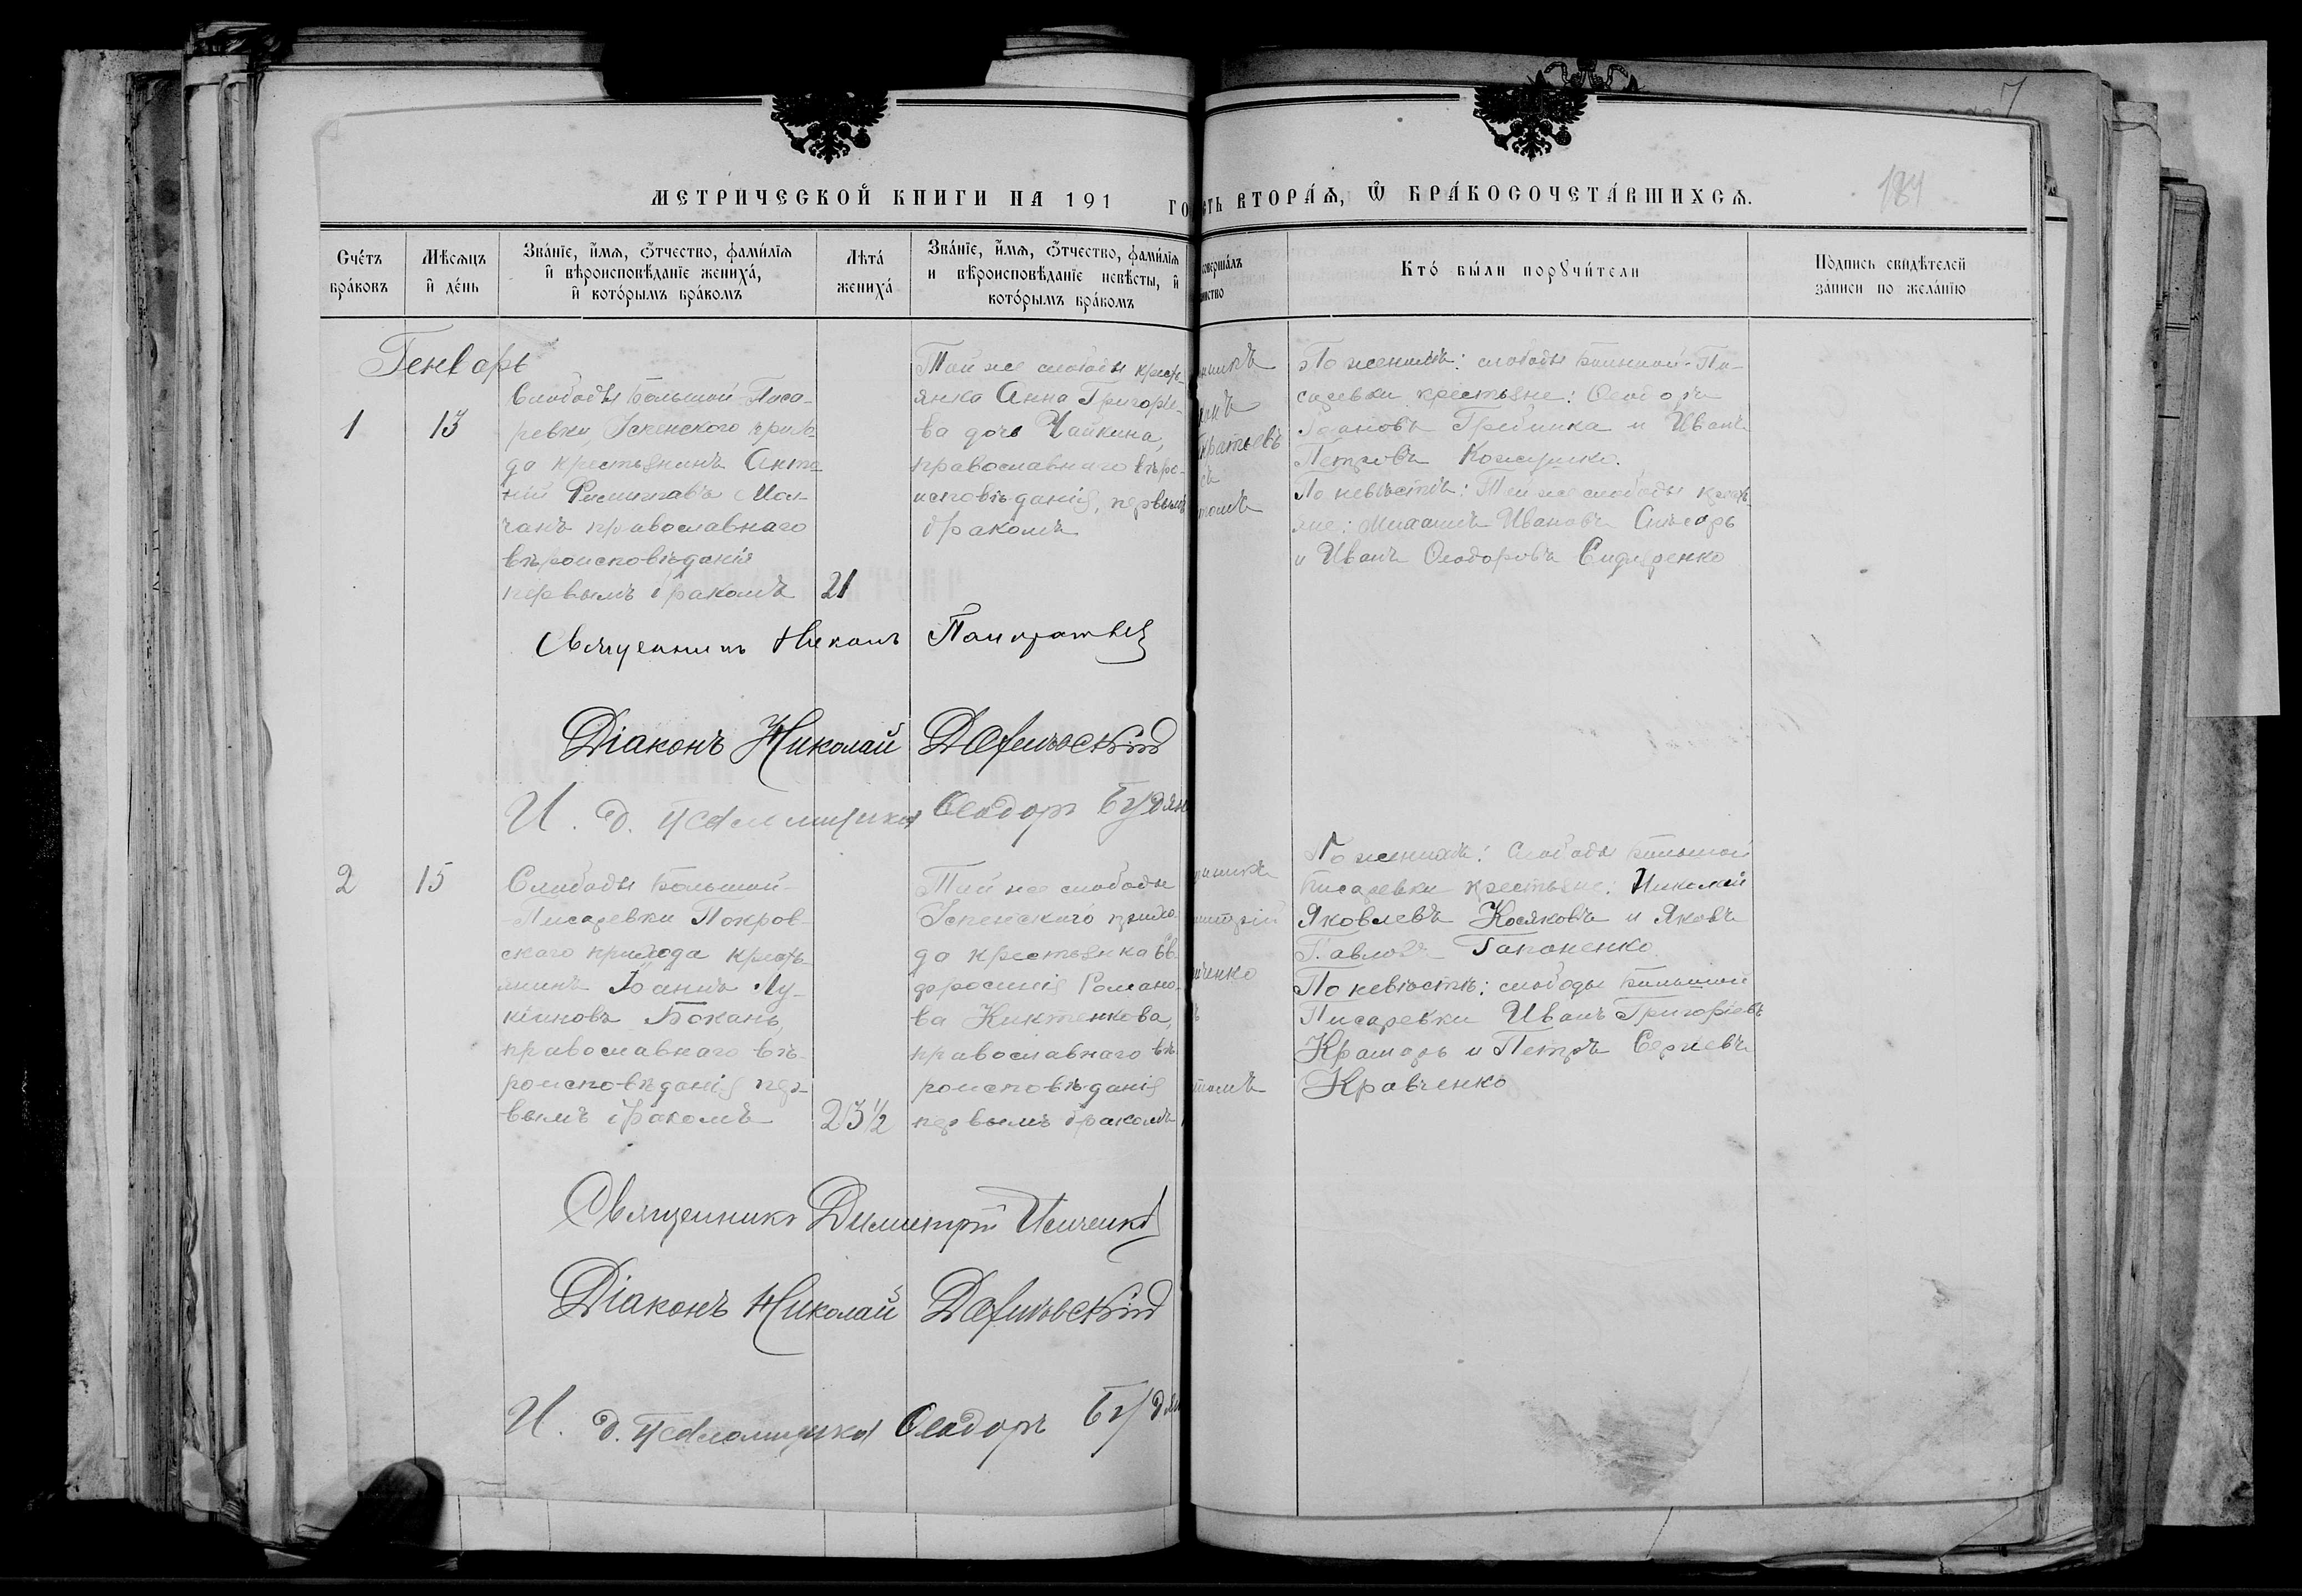 7
МЕТРИЧЕСКОЙ КНИГИ НА 191 ГО
СТЬ ВТОРАѦ, Ѿ БРАКОСОЧЕТАВШИХСѦ.
184
Счётъ браковъ
Мѣсяцъ и день
Званіе, имя, отчество, фамилія и вѣроисповѣданіе жениха, и которымъ бракомъ
Лѣта жениха
Званіе, имя, отчество, фамилія и вѣроисповѣданіе невѣсты, и которымъ бракомъ
совершалъ
Кто были поручители
Подпись свидѣтелей записи по желанію
Генварь
1
13
Слободы Большой-Писа-
ревки, Успенского прихо-
да крестьянинъ Анто-
ній Мол-
чанъ православнаго
вѣроисповѣданія
первымъ бракомъ
21
Той же слободы крест-
янка Анна Григорье-
ва дочь Чайкина,
православнаго вѣро-
исповѣданія, первымъ
бракомъ
По женихѣ: слободы Большой-Пи-
саревки крестьяне: Ѳеодоръ
Гребинка и Иванъ
Петровъ Кожушко.
По невѣстѣ: Той же слободы крест
яне: Михаилъ Ивановъ Слѣсарь
и Иванъ Ѳеодоровъ Сидоренко
Священникъ Никонъ Панкратьевъ
Діаконъ Николай
И. д. псаломщика Ѳеодоръ Будян
2
15
Слободы Большой-
-Писаревки Покров-
скаго прихода кресть-
янинъ Іоаннъ Лу-
кіановъ Бокань,
православнаго вѣ-
роисповѣданія пер-
вымъ бракомъ
23 1/2
Той же слободы
Успенскаго прихо-
да крестьянка Ев-
фросинія Романо-
ва Никтенкова,
православнаго вѣ
роисповѣданія
первымъ бракомъ
По женихѣ: Слободы Большой
Писаревки крестьяне: Николай
Яковлевъ Косяковъ и Яковъ
Павловъ Гапоненко
По невѣстѣ: слободы Большой
Писаревки Иванъ Григорьевъ
Крамарь и Петръ Сергѣевъ
Кравченко
Священникъ Димитрій Ильченко
Діаконъ Николай
И. д. псаломщика Ѳеодоръ Будян